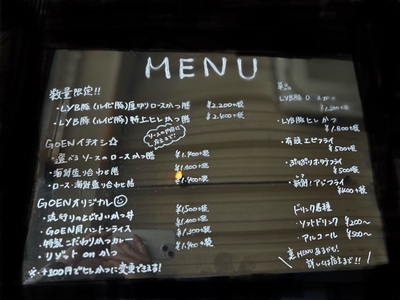 MENU
数量限定!!
・LYB豚(ルイビ豚)厚切りロースかつ膳 ¥2.200+税
・LYB豚(ルイビ豚)特上ヒレかつ膳 ¥2.600+税
GOENイチオシ☆
ソースの内容は
・選べるソースのロースかつ膳 ¥1.400+税
・海鮮盛り合わせ膳
・ロース・海鮮盛り合わせ膳 ¥1.900+税
GOENオリジナル
・流行りのとじないかつ丼 ¥1500+税
・GOEN風ハントンライス
・特製こだわりかつカレー ¥1.300+税
・リゾット on かつ ¥1.900+税
※・+100円でヒレかつに変更できます!
単品
LYB豚
・LYB豚ヒレかつ
¥1.800+税
・有頭エビフライ
¥500+税
・ぷりぷりホタテフライ
¥500+税
・新鮮!アジフライ
¥400+税
ドリンク各種
・ソフトドリンク ¥200〜
・アルコール ¥500〜
裏MENUあるかも!
詳しくは店主まで!!